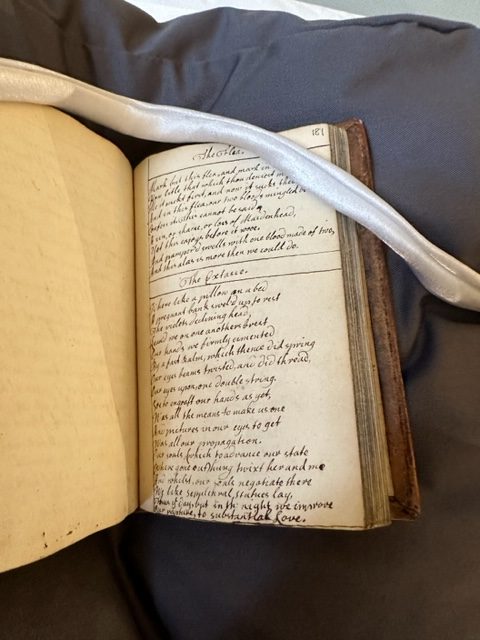 181
The Flea.
Mark but this flea, and mark in
How little, that which thou deniest m
suckt first, and now it sucks thee
And in this flea, our two bloods mingled b
this cannot be said
A sin, or shame, or loss of Maidenhead,
Yet this enjoys before it wooe.
And pamper'd swells with one blood made of two,
And this alas is more then we could do.
The Extasie.
Where like a pillow on a bed
A pregnant bank swel'd up to rest
The violets declining head,
on one anothers brest
Our hands we firmly cimented
By a fast balm, which thence did spring
Our eyes beams twisted, and did thread,
Our eyes upon, one double string.
So to engraft our hands as yet,
Was all the means to make us one
And pictures in our eyes to get
Was all our propagation.
Our souls, (which to advance our state
Where gone out) hung twixt her and me
And whilst, our souls negotiate there
We like sepulchral, statues lay,
days, but in th' night we improve
Our to substantial Love.